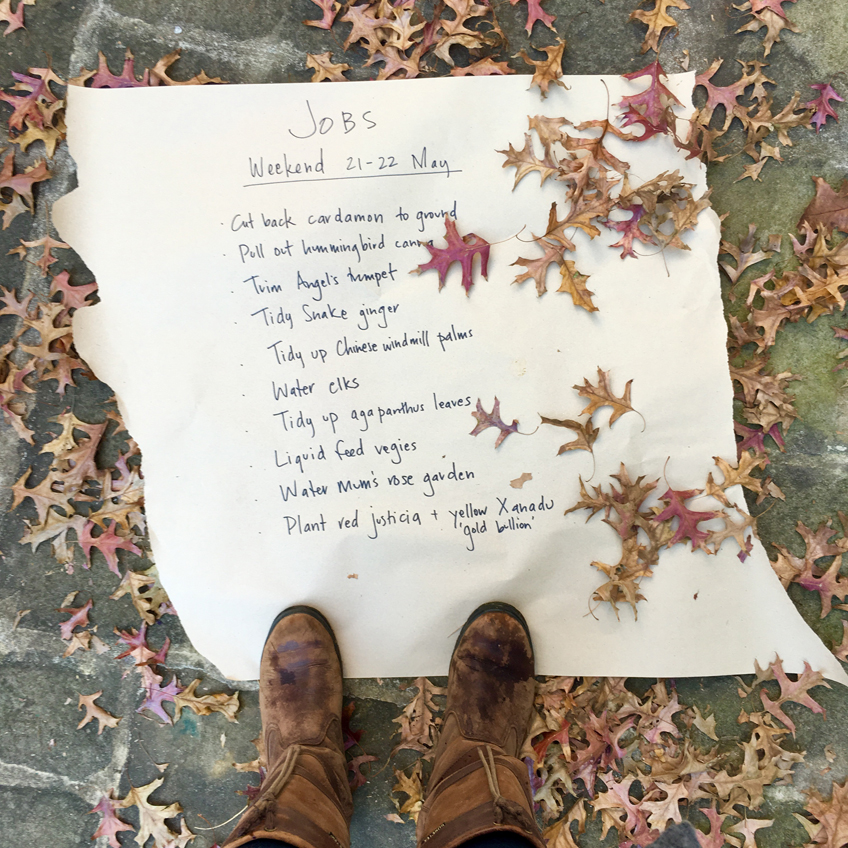 JOBS
Weekend 21-22 May
· Cut back cardamon to ground
· Pull out hummingbird canna
· Trim Angel's trumpet
· Tidy Snake ginger
· Tidy up Chinese windmill palms
· Water elks
· Tidy up agapanthus leaves
· Liquid feed vegies
· Water Mum's rose garden
· Plant red justicia + yellow Xanadu
'gold bullion'